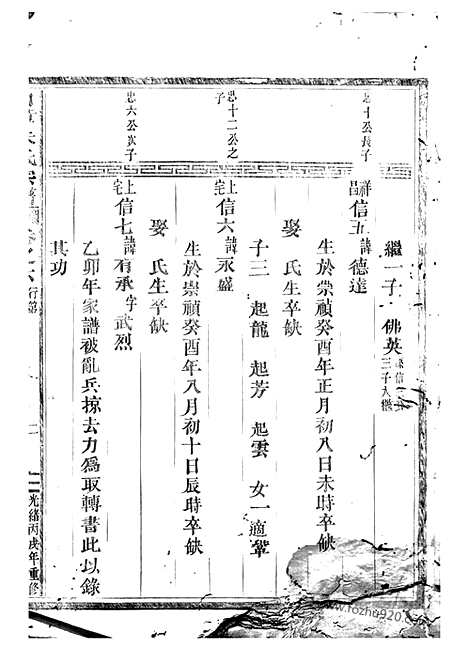 繼一子 佛英
忠十公長子
祥昌 信五 諱德達
生於崇禎癸酉年正月初八日未時卒缺
娶 氏生卒缺
子三 起龍 起芳 起雲 女一適
忠十二公之子
上宅 信六 諱永盛
生於崇禎癸酉年八月初十日辰時卒缺
娶 氏生卒缺
忠六公次子
上宅 信七 諱有承 字武烈
乙卯年家譜被亂兵掠去力爲取轉書此以錄
其功
行第
光緒丙戌年重修
www.fozhu920.com